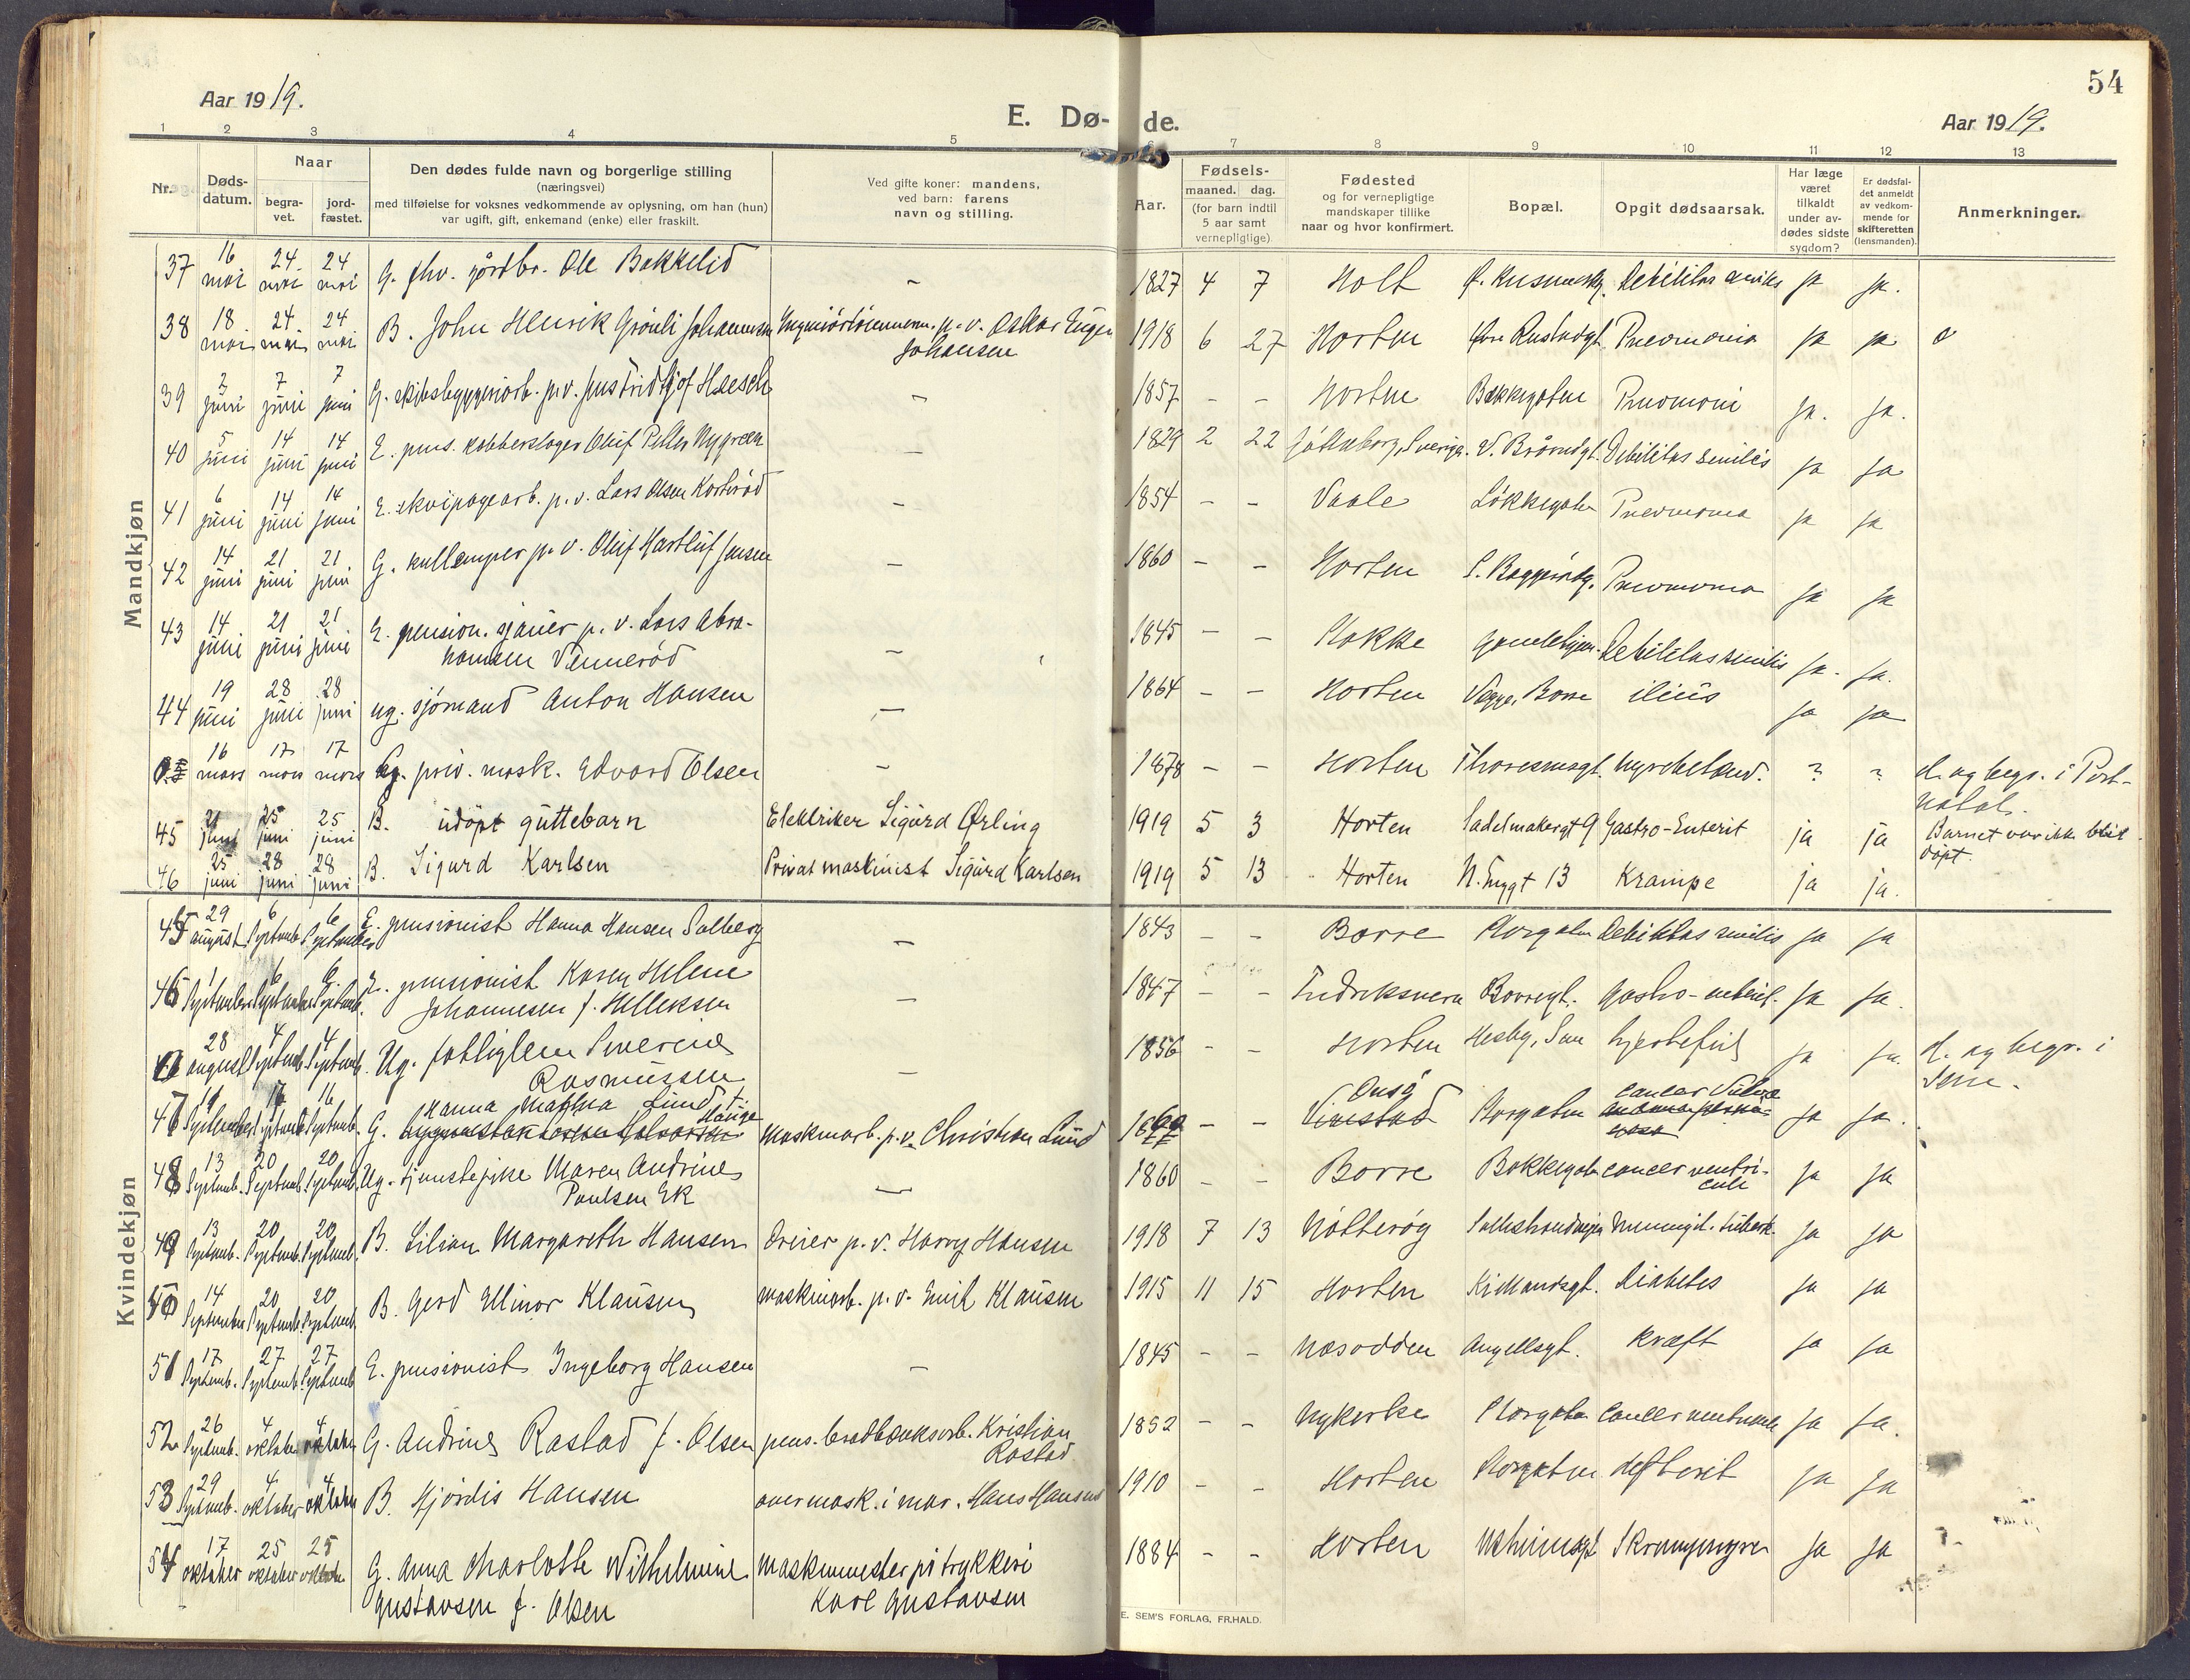 54
Aar 1919.
E. Dø-
de.
Aar 1919.
1 2 3 4 5 6 7 8 9 10 11 12 13
Nr.
Døds-
datum.
Naar
begra-
vet.
jord-
fæstet.
Den dødes fulde navn og borgerlige stilling
(næringsvei)
med tilføielse for voksnes vedkommende av oplysning, om han (hun)
var ugift, gift, enkemand (enke) eller fraskilt.
Ved gifte koner: mandens,
ved barn: farens
navn og stilling.
Aar.
Fødsels-
maaned. dag.
(for barn indtil
5 aar samt
vernepligtige)
Fødested
og for vernepligtige
mandskaper tillike
naar og hvor konfirmert.
Bopæl.
Opgit dødsaarsak.
Har læge
været
tilkaldt
under av-
dødes sidste
sygdom?
Er dødsfal-
det anmeldt
av vedkom-
mende for
skifteretten
(lensmanden).
Anmerkninger.
Mandkjøn
37 16 mai 24 mai 24 mai G. fhv. gårdbr. Ole Bakkelid — 1827 4 7 Holt Debilitas senilis ja ja.
38 18 mai 24 mai 24 mai B. John Henrik Grönli Johannsen p. v. Oskar Eugen
Johansen 1918 6 27 Horten Pneumonia ja ja
39 2 juni 7 juni 7 juni G. skibsbyggeriarb. p. v. Jens Fridtjof Haesch — 1857 - - Horten Bakkegaten Pneumoni ja. ja.
40 5 juni 14 juni 14 juni E. pens. kobberslager Oluf Petter Nygreen — 1829 2 22 Göteborg, Sverige. Debilitas senilis ja ja
41 6 juni 14 juni 14 juni E. ekvipagearb. p. v. Lars Olsen — 1854 - - Vaale Løkkegaten Pneumonia ja ja
42 14 juni 21 juni 21 juni G. kullemper p. v. Oluf Hartluf Jensen — 1860 - - Horten Pneumonia ja ja
43 14 juni 21 juni 21 juni E. pension. sjauer p. v. Lars Abra-
hamsen Vennerød — 1845 - - Debilitas senilis ja. ja.
44 19 juni 28 juni 28 juni ug. sjømand Anton Hansen — 1864 - - Horten Borre ileus ja ja
16 mars 17 mars 17 mars Ug. priv. mask. Edvard Olsen — 1878 - - Horten ? ? d. og begr. i Port-
Natal.
45 21 juni 25 juni 25 juni B. udøpt guttebarn Elektriker Sigurd Ørling 1919 5 3 Horten Sadelmakergt 9 Gastro-Enterit ja ja Barnet var ikke blit
døpt.
46 25 juni 28 juni 28 juni B. Sigurd Karlsen Privat maskinist Sigurd Karlsen 1919 5 13 Horten 13 Krampe ja ja.
Kvindekjøn
45 29 august 6 Septemb. 6 September E. pensionist Hanna Hansen Solberg — 1843 - - Borre Storgaten Debilitas senilis ja ja
46 1 September 6 September 6 Septemb. E. pensionist Karen Helene
Johannesen f. Helleksen — 1847 - - Fredriksvern Borregt. Gastro-enterit. ja ja.
28 august 4 Septemb. 4 Septemb. Ug. fattiglem Severine
Rasmussen — 1856 - - Horten Sem hjertefeil ja ja. d. og begr. i
Sem.
47 September Septemb. 16 Septemb. G. Hanna Lund f.
Hauge Maskinarb. p. v. Christian Lund - - Onsø
Storgaten cancer ja ja.
48 13 Septemb. 20 Septemb. 20 Septemb. Ug. tjenestepike Maren Andrine
Paulsen Ek — 1860 - - Borre Bakkegaten cancer ventri-
culi ja ja
49 13 Septemb. 20 Septemb. 20 Septemb. B. Lilian Margareth Hansen Dreier p. v. Harry Hansen 1918 7 13 Nøtterøy Meningit. tuberk. ja ja
50 14 September 20 Septemb. 20 Septemb. B. Gerd Ellinor Klausen maskinarb. p. v. Emil Klausen 1915 11 15 Horten Kirklandsgt. Diabetes ja ja
51 17 Septemb. 27 Septemb. 27 Septemb. E. pensionist Ingeborg Hansen — 1845 - - Næsodden Angellsgt. kræft ja ja
52 26 Septemb. 4 oktober 4 oktober G. Andrine Rastad f. Olsen pens. Kristian
Rastad 1852 - - Nykirke Storgaten Cancer ventriculi ja ja.
53 29 Septemb. 4 oktober 4 oktober B. Hjørdis Hansen overmask. i mar. Hans Hansen 1910 - - Horten Storgaten difterit ja ja
54 17 oktober 25 oktober 25 oktober G. Anna Charlotte Wilhelmine
Gustavsen f. Olsen Maskinmester på trykkeri
Karl Gustavsen 1884 - - Horten Skrumpnyre ja ja
E. SEM'S FORLAG, FR.HALD.